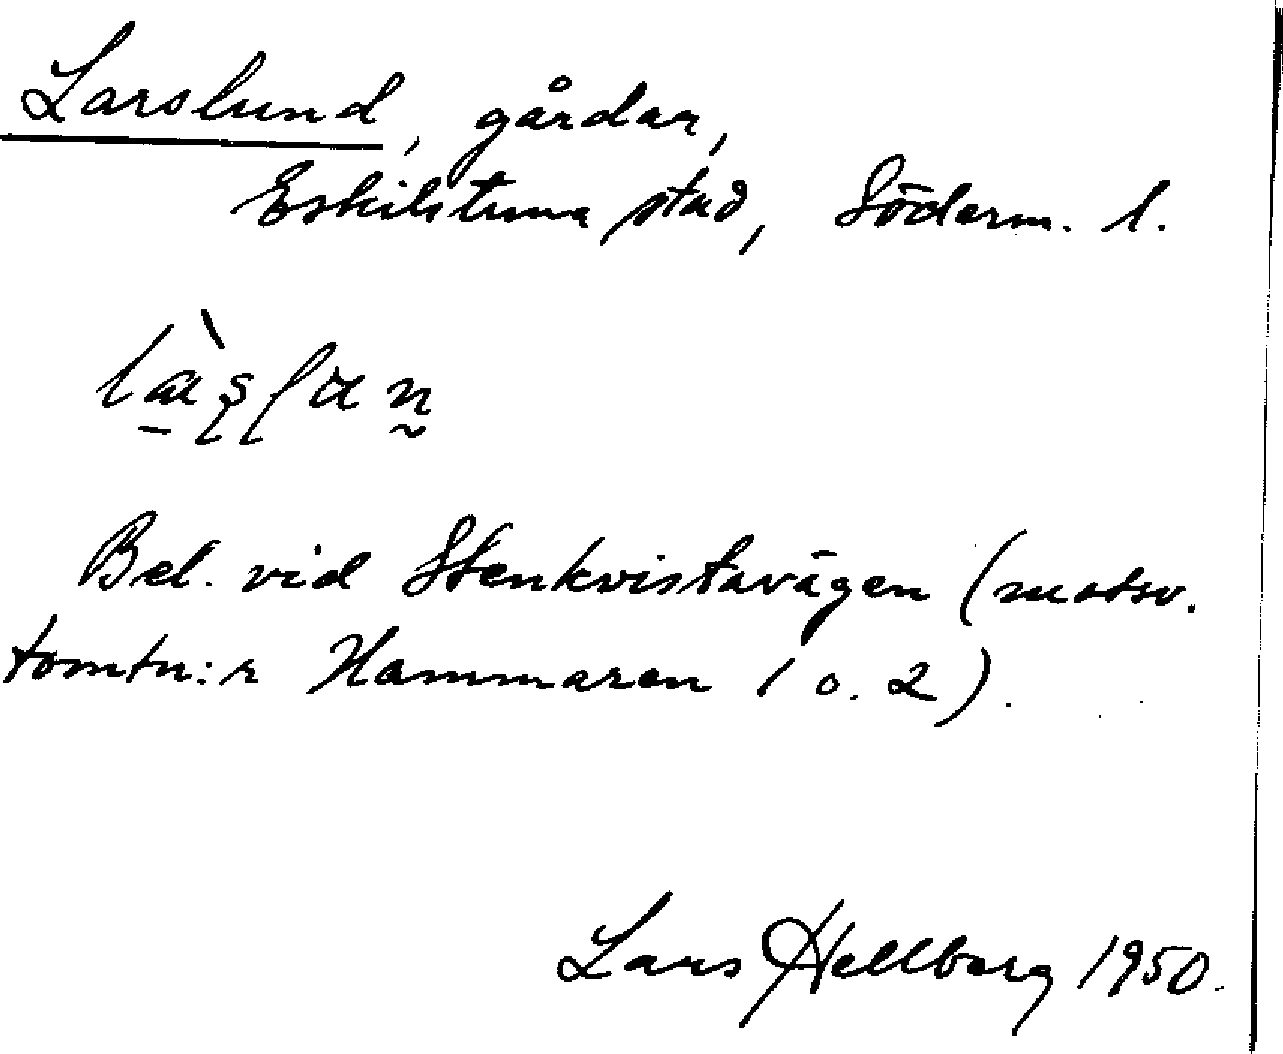 Larslund, gårdar,
Eskilstuna stad, Söderm. l.
Bel. vid Stenkvistavägen (motsv.
tomtn:r Hammaren 1 o. 2).
Lars Hellberg 1950.